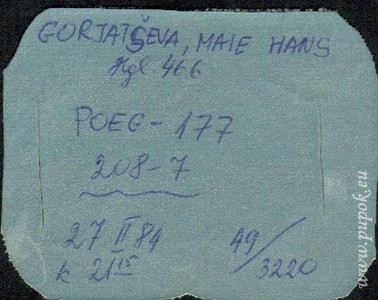 GORJATŠEVA, MAIE HANS
Hgl. 466
POEG - 177
208-7
27 II 84
k 21 15
49/3220
www.pupok.eu